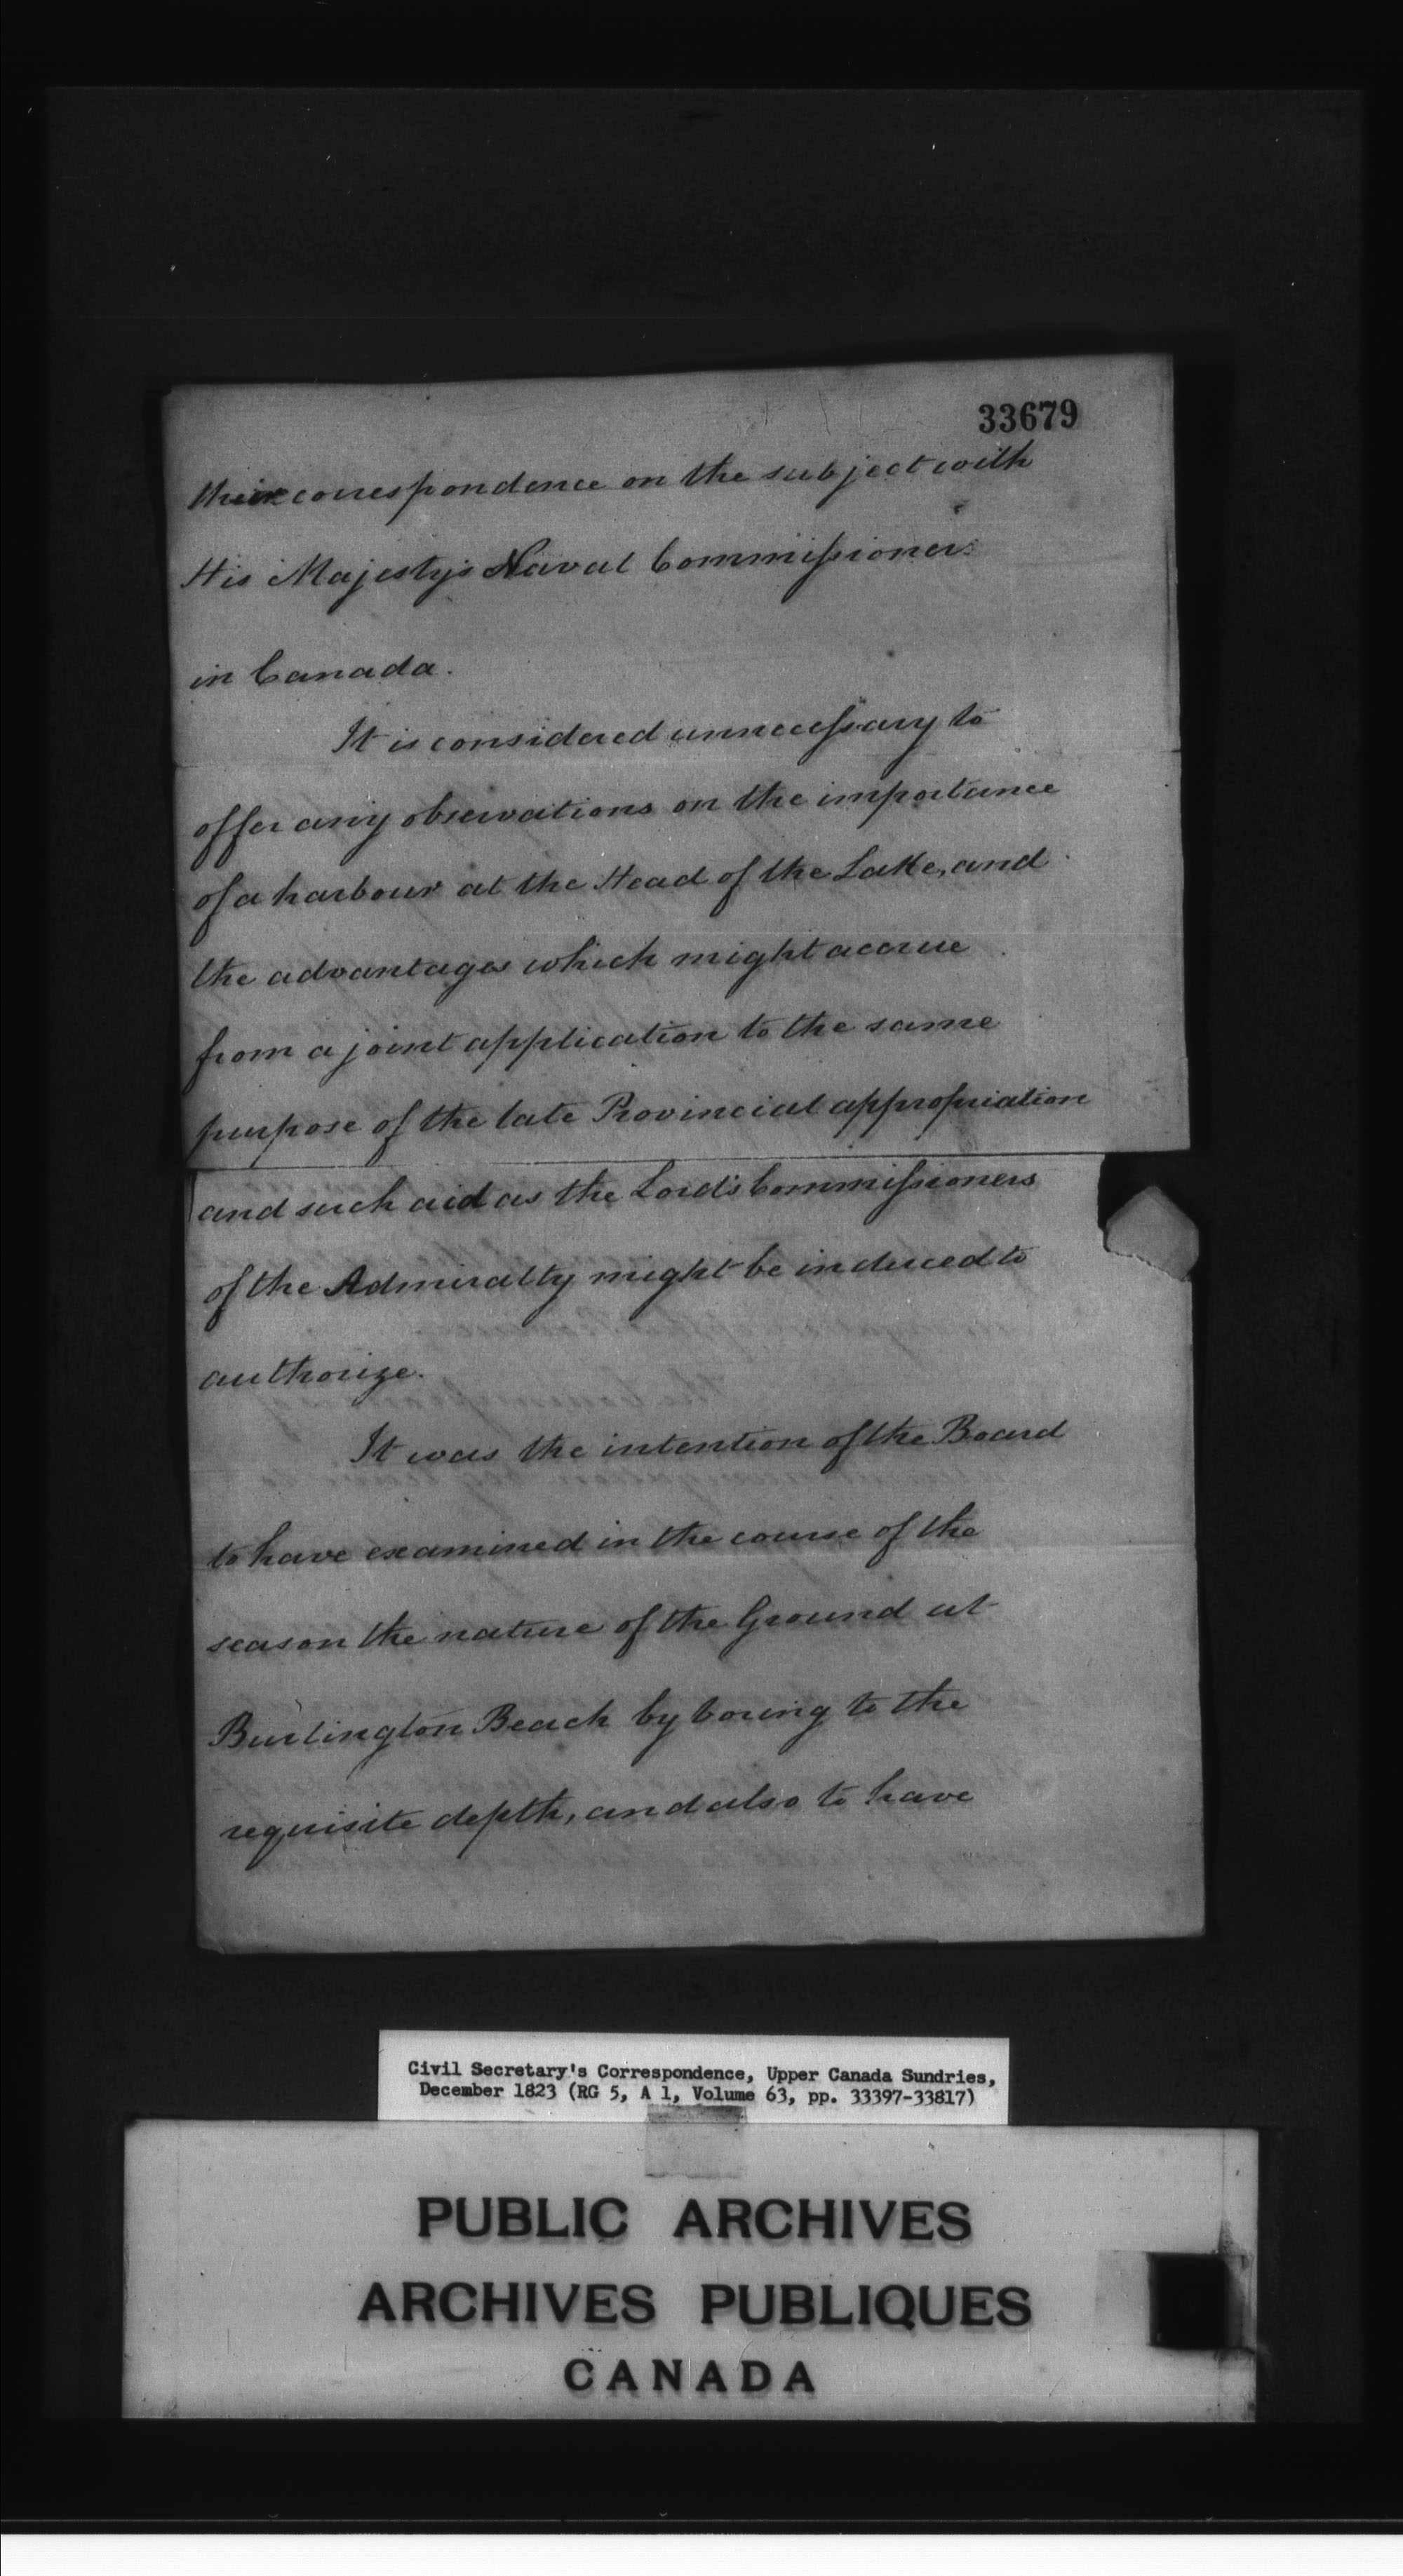 33679
their correspondence on the subject with
His Majesty's Naval Commissioner
in Canada.
It is considered unnecessary to
offer any observations on the importance
of a harbour at the Head of the Lake, and
the advantages which might accrue
from a joint application to the same
purpose of the late Provincial appropriation
and such aid as the Lord's Commissioners
of the Admiralty might be induced to
authorize.
It was the intention of the Board
to have examined in the course of the
season the nature of the Ground at
Burlington Beach by boring to the
requisite depth, and also to have
Civil Secretary's Correspondence, Upper Canada Sundries,
December 1823 (RG 5, A 1, Volume 63, pp. 33397-33817)
PUBLIC ARCHIVES
ARCHIVES PUBLIQUES
CANADA